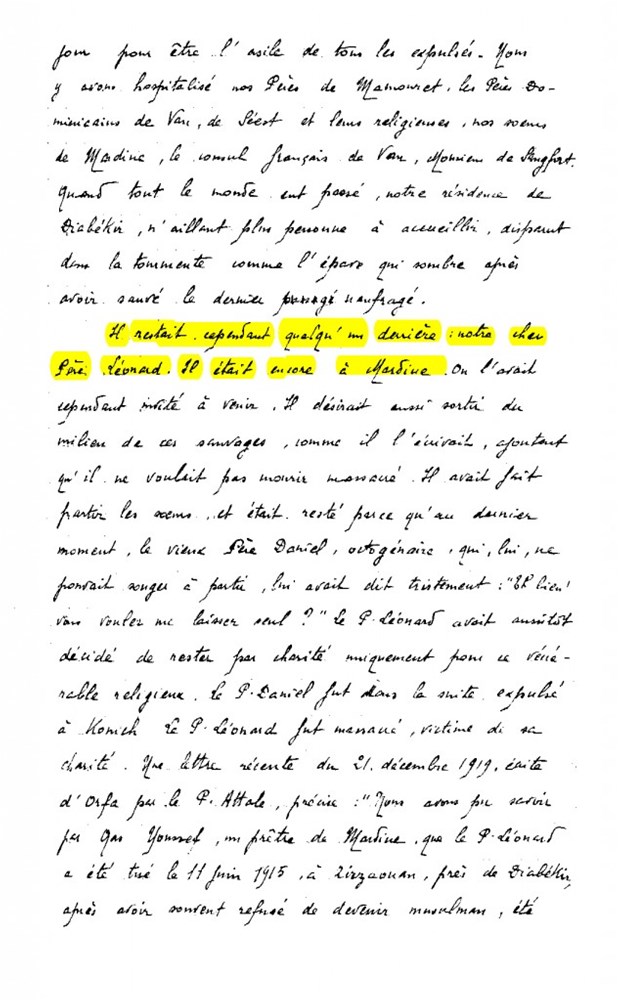 jour pour être l'asile de tous les expulsés. Nous
y avons hospitalisé nos Pères de Mamouret, les Pères Do-
minicains de Van, de Séert et leurs religieuses, nos soeurs
de Mardine, le consul français de Van, Monsieur de
Quand tout le monde eut passé, notre résidence de
Diabékir, n'aillant plus personne à accueillir, disparut
dans la tourmente comme l'épave qui sombre après
avoir sauvé le dernier naufragé.
Il restait cependant quelqu'un derrière : notre cher
Père Léonard. Il était encore à Mardine. On l'avait
cependant invité à venir. Il désirait aussi sortir du
milieu de ces sauvages, comme il l'écrivait, ajoutant
qu'il ne voulait pas mourir massacré. Il avait fait
partir les soeurs, et était resté parce qu'au dernier
moment, le vieux Père Daniel, octogénaire, qui, lui, ne
pouvait songer à partir, lui avait dit tristement : "Eh bien!
vous voulez me laisser seul ?" Le P. Léonard avait aussitôt
décidé de rester par charité uniquement pour ce véné-
rable religieux. Le P. Daniel fut dans la suite expulsé
à Konieh. Le P. Léonard fut massacré, victime de sa
charité. Une lettre récente du 21. décembre 1919, écrite
d'Orfa par le P. Attale, précise : "Nous avons pu savoir
par Qas Youssef, un prêtre de Mardine, que le P. Léonard
a été tué le 11 Juin 1915, à Zirzaouan, près de Diabékir,
après avoir souvent refusé de devenir musulman, été